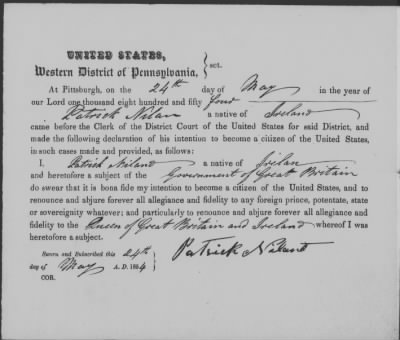 UNITED STATES,
Western District of Pennsylvania, } sct.
At Pittsburgh, on the 24th day of May in the year of
our Lord one thousand eight hundred and fifty four
Patrick Nilan a native of Ireland
came before the Clerk of the District Court of the United States for said District, and
made the following declaration of his intention to become a citizen of the United States,
in such cases made and provided, as follows:
I. Patrick Niland a native of Irelan
and heretofore a subject of the Government of Great Britain
do swear that it is bona fide my intention to become a citizen of the United States, and to
renounce and abjure forever all allegiance and fidelity to any foreign prince, potentate, state
or sovereignty whatever; and particularly to renounce and abjure forever all allegiance and
fidelity to the Queen of Great Britain and Ireland whereof I was
heretofore a subject.
Sworn and Subscribed this 24th
day of May A. D. 1854 }
Patrick Niland
COR.